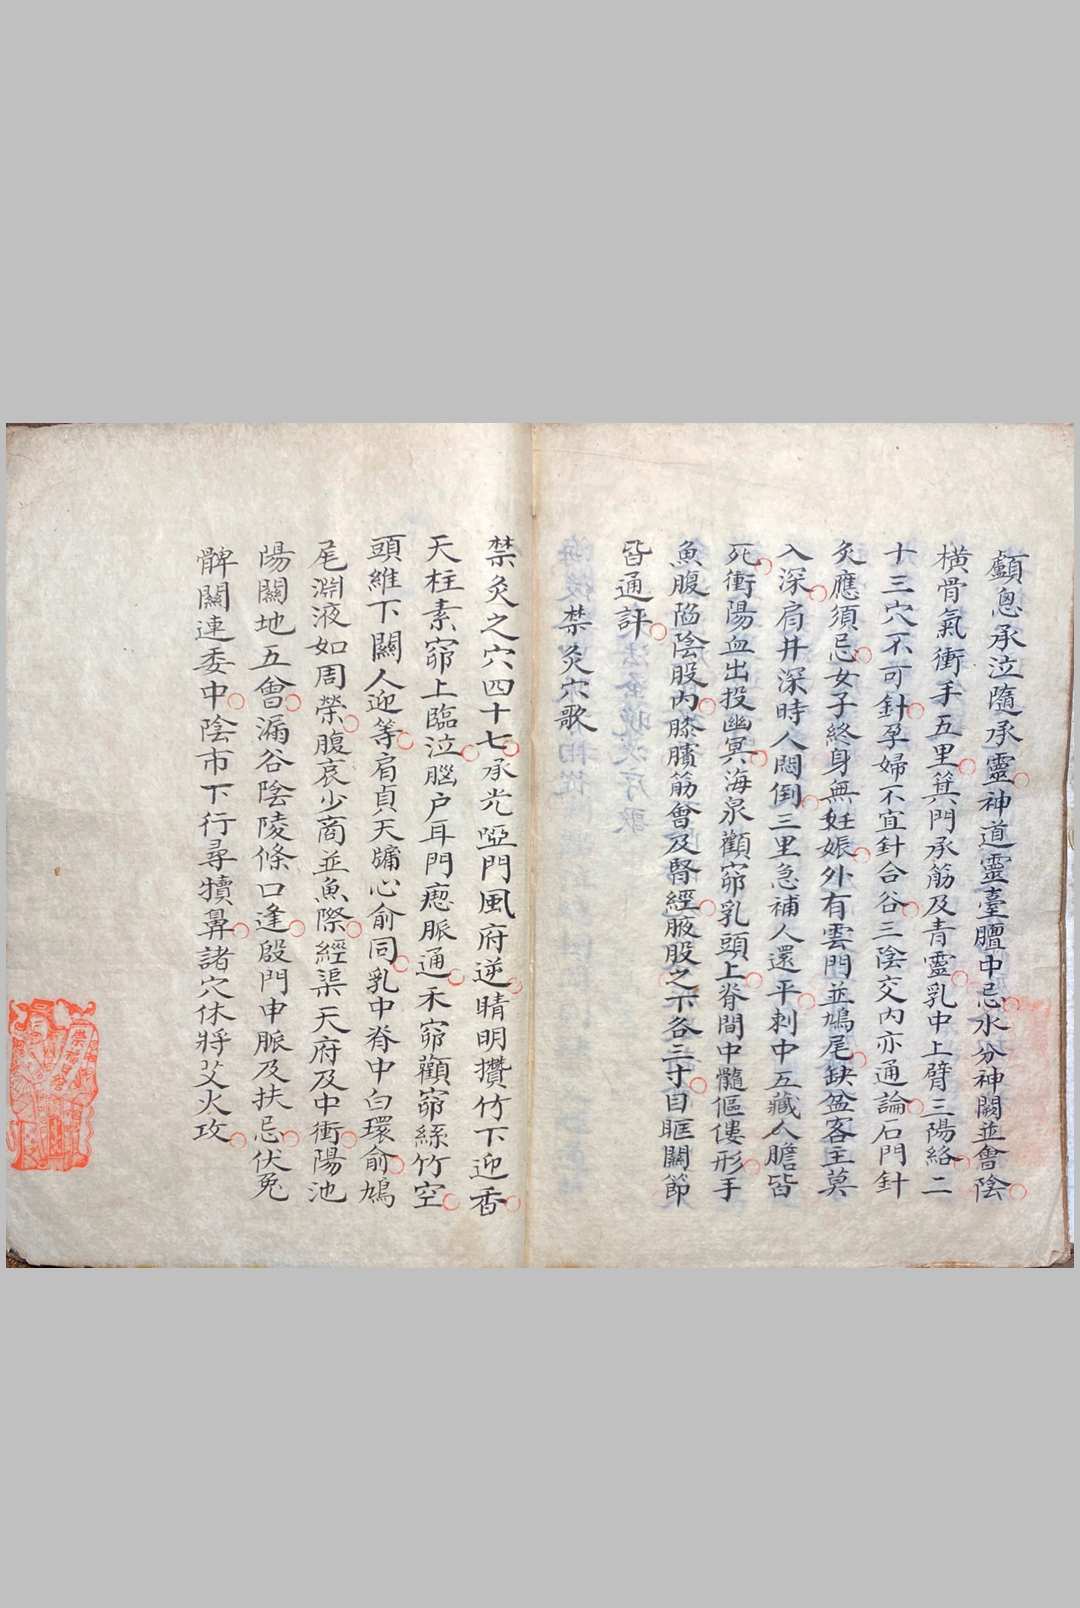 顖息承泣隨承靈神道靈臺膻中忌水分神闕並會陰
橫骨氣衝手五里箕門承筋及青靈乳中上臂三陽絡二
十三穴不可針孕婦不宜針合谷三陰交內亦通論石門針
灸應須忌女子終身無妊娠外有雲門並鳩尾缺盆客主莫
入深肩井深時人悶倒三里急補人還平刺中五藏人膽皆
死衝陽血出投幽冥海泉顴窌乳頭上脊間中髓傴僂形手
魚腹陷陰股內膝臏筋會及腎經腋股之下各三寸目眶關節
皆通評
禁灸穴歌
禁灸之穴四十七承光啞門風府逆睛明攢竹下迎香
天柱素窌上臨泣腦户耳門瘛脈通禾窌顴窌絲竹空
頭維下關人迎等肩貞天牖心俞同乳中脊中白環俞鳩
尾淵液如周榮腹哀少商並魚際經渠天府及中衝陽池
陽關地五會漏谷陰陵條口逢殷門申脈及扶忌伏兔
髀關連委中陰市下行尋犢鼻諸穴休將艾火攻